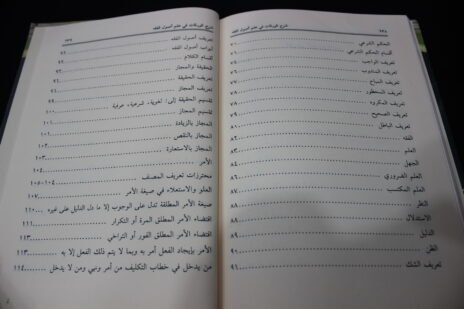 ٢٣٨ شرح الورقات في علم أصول الفقه
الحكم الشرعي ٧٠
أقسام الحكم الشرعي
تعريف الواجب
تعريف المندوب
تعريف المباح
تعريف المحظور
تعريف المكروه
تعريف الصحيح
تعريف الباطل
الفقه
العلم
الجهل
العلم الضروري
العلم المكتسب
النظر
الاستدلال
الدليل
الظن
تعريف الشك ٩١
شرح الورقات في علم أصول الفقه ٢٣٩
تعريف أصول الفقه
أبواب أصول الفقه
أقسام الكلام
الحقيقة والمجاز
تعريف الحقيقة
تعريف المجاز
تقسيم الحقيقة إلى: لغوية، شرعية، عرفية
المجاز بالزيادة ١٠١
المجاز بالنقص
المجاز بالاستعارة
الأمر ١٠٤
محترزات تعريف المصنف ١٠٤-١٠٥
العلو والاستعلاء في صيغة الأمر ١٠٧
صيغة الأمر المطلقة تدل على الوجوب إلا ما دل الدليل على غيره ١١٠
اقتضاء الأمر المطلق المرة أو التكرار ١١١
اقتضاء الأمر المطلق الفور أو التراخي ١١٣
الأمر بإيجاد الفعل أمر به وبما لا يتم ذلك الفعل إلا به
من يدخل في خطاب التكليف من أمر ونهي ومن لا يدخل ١١٤